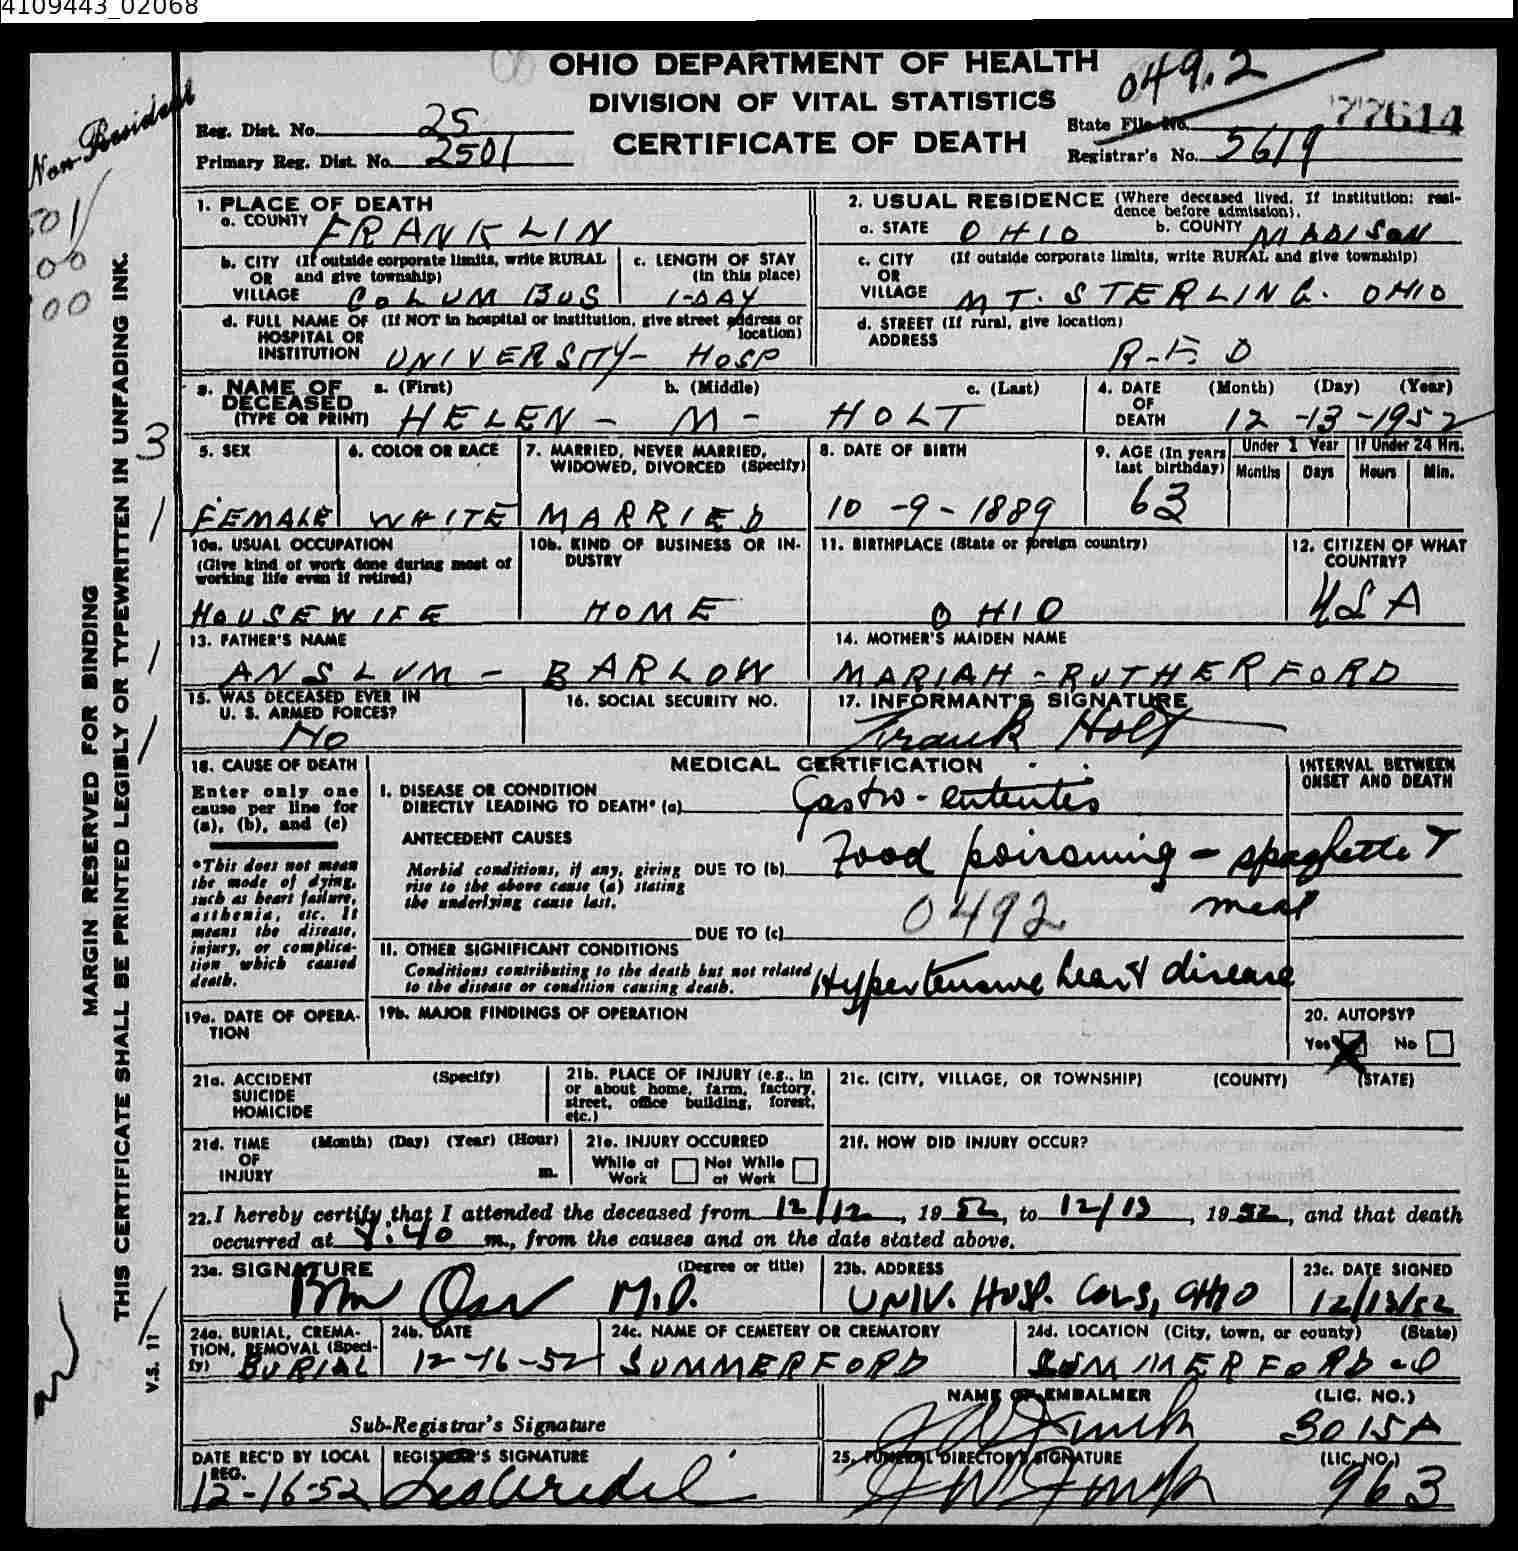 4109443_02068
OHIO DEPARTMENT OF HEALTH
DIVISION OF VITAL STATISTICS
CERTIFICATE OF DEATH
049.2
Reg. Dist. No. 25
Primary Reg. Dist. No. 2501
State File No. 77614
Registrar's No. 5619
Non-Resident
MARGIN RESERVED FOR BINDING
THIS CERTIFICATE SHALL BE PRINTED LEGIBLY OR TYPEWRITTEN IN UNFADING INK.
V.S. 11
3
1. PLACE OF DEATH
a. COUNTY FRANKLIN
b. CITY (If outside corporate limits, write RURAL
OR and give township)
VILLAGE COLUMBUS
c. LENGTH OF STAY
(in this place)
1-DAY
d. FULL NAME OF (If NOT in hospital or institution, give street address or
location)
HOSPITAL OR
INSTITUTION UNIVERSITY- HOSP
2. USUAL RESIDENCE (Where deceased lived. If institution: resi-
dence before admission).
a. STATE OHIO b. COUNTY MADISON
c. CITY (If outside corporate limits, write RURAL and give township)
OR
VILLAGE MT. STERLING. OHIO
d. STREET (If rural, give location)
ADDRESS
R-F. D
3. NAME OF DECEASED (TYPE OR PRINT)
a. (First) b. (Middle) c. (Last)
HELEN - M - HOLT
4. DATE OF DEATH (Month) (Day) (Year)
12 -13 -1952
5. SEX
FEMALE
6. COLOR OR RACE
WHITE
7. MARRIED, NEVER MARRIED,
WIDOWED, DIVORCED (Specify)
MARRIED
8. DATE OF BIRTH
10 -9 - 1889
9. AGE (In years
last birthday)
63
Under 1 Year
Months Days
If Under 24 Hrs.
Hours Min.
10a. USUAL OCCUPATION
(Give kind of work done during most of
working life even if retired)
HOUSEWIFE
10b. KIND OF BUSINESS OR IN-
DUSTRY
HOME
11. BIRTHPLACE (State or foreign country)
OHIO
12. CITIZEN OF WHAT
COUNTRY?
USA
13. FATHER'S NAME
ANSLUM - BARLOW
14. MOTHER'S MAIDEN NAME
MARIAH - RUTHERFORD
15. WAS DECEASED EVER IN
U. S. ARMED FORCES?
No
16. SOCIAL SECURITY NO.
17. INFORMANT'S SIGNATURE
Frank Holt
18. CAUSE OF DEATH
Enter only one
cause per line for
(a), (b), and (c)
*This does not mean
the mode of dying,
such as heart failure,
asthenia, etc. It
means the disease,
injury, or complica-
tion which caused
death.
MEDICAL CERTIFICATION
INTERVAL BETWEEN
ONSET AND DEATH
I. DISEASE OR CONDITION
DIRECTLY LEADING TO DEATH* (a) Gastro-enteritis
ANTECEDENT CAUSES
Morbid conditions, if any, giving
rise to the above cause (a) stating
the underlying cause last.
DUE TO (b) Food poisoning - spaghetti
meal
0492
DUE TO (c)
II. OTHER SIGNIFICANT CONDITIONS
Conditions contributing to the death but not related
to the disease or condition causing death.
Hypertensive heart disease
19a. DATE OF OPERA-
TION
19b. MAJOR FINDINGS OF OPERATION
20. AUTOPSY?
Yes X No
21a. ACCIDENT (Specify)
SUICIDE
HOMICIDE
21b. PLACE OF INJURY (e.g., in
or about home, farm, factory,
street, office building, forest,
etc.)
21c. (CITY, VILLAGE, OR TOWNSHIP) (COUNTY) (STATE)
21d. TIME (Month) (Day) (Year) (Hour)
OF
INJURY m.
21e. INJURY OCCURRED
While at Work Not While at Work
21f. HOW DID INJURY OCCUR?
22. I hereby certify that I attended the deceased from 12/12, 1952, to 12/13, 1952, and that death
occurred at :40 m., from the causes and on the date stated above.
23a. SIGNATURE (Degree or title)
M.D.
23b. ADDRESS
UNIV. HOSP. COLS, OHIO
23c. DATE SIGNED
12/13/52
24a. BURIAL, CREMA-
TION, REMOVAL (Speci-
fy) BURIAL
24b. DATE
12-16-52
24c. NAME OF CEMETERY OR CREMATORY
SUMMERFORD
24d. LOCATION (City, town, or county) (State)
SUMMERFORD-O
Sub-Registrar's Signature
NAME OF EMBALMER (LIC. NO.)
3015A
DATE REC'D BY LOCAL
REG.
12-16-52
REGISTRAR'S SIGNATURE
25. FUNERAL DIRECTOR'S SIGNATURE (LIC. NO.)
963